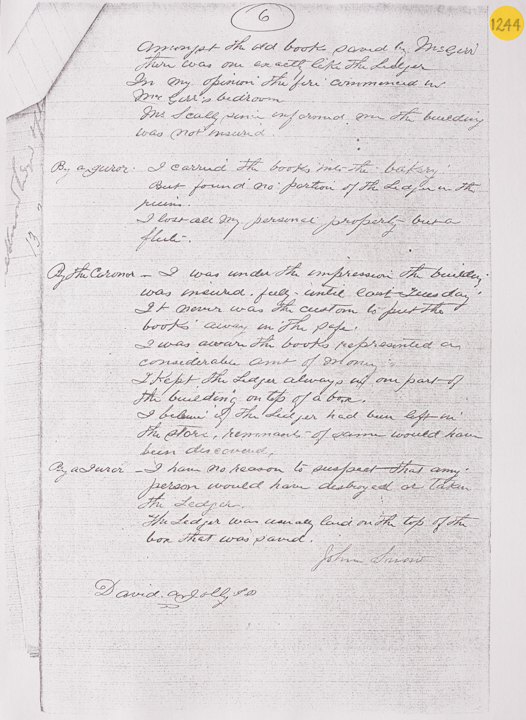 6
1244
Amongst the old books saved by McGirr
there was one exactly like the Ledger
In my opinion the fire commenced in
Mrs Girr's bedroom
Mr Scally senr informed me the building
was not insured.
By a Juror - I carried the books into the bakery
But found no portion of the Ledger in the
ruins.
I lost all my personal property but a
flute.
By the Coroner - I was under the impression the building
was insured fully until last Tuesday
It never was the custom to put the
books away in the safe.
I was aware the books represented a
considerable amt of money
I kept the Ledger always in one part of
the building on top of a box.
I believe if the Ledger had been left in
the store, remnants of same would have
been discovered.
By a Juror - I have no reason to suspect that any
person would have destroyed or taken
the Ledger.
The Ledger was usually laid on the top of the
box that was saved.
John Snow
David Jolly